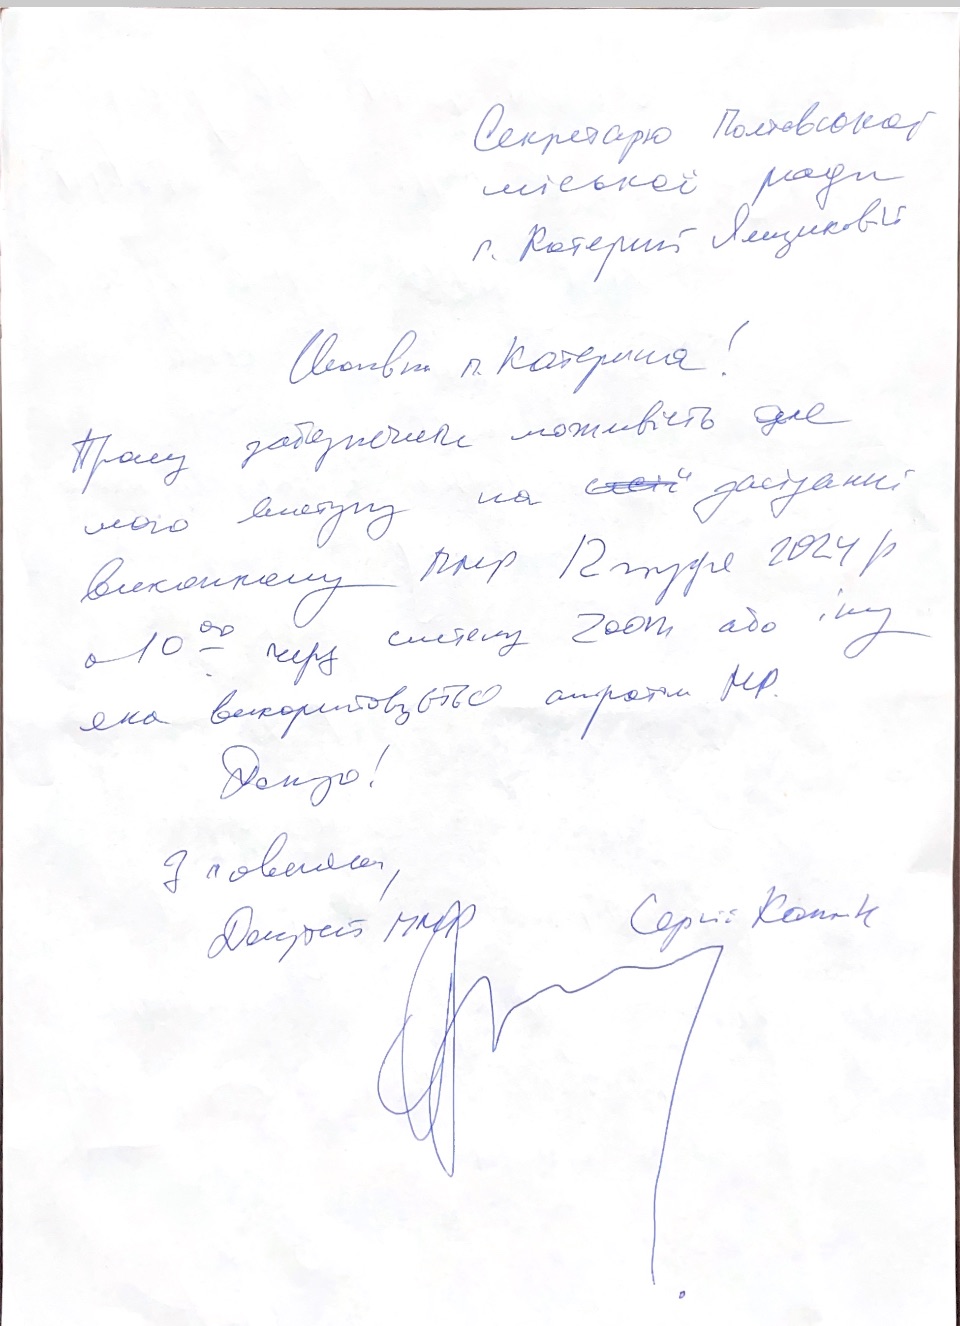 Секретарю Полтавської
міської ради
п. Катерині Ямщиковій
Шановна п. Катерина!
Прошу забезпечити можливість для
мого виступу на засіданні
виконкому ПМР 12 грудня 2024 р
о 10 00 через систему ZOOM або іншу
яка використовується апаратом МР.
Дякую!
З повагою,
Депутат ПМР Сергій Капли